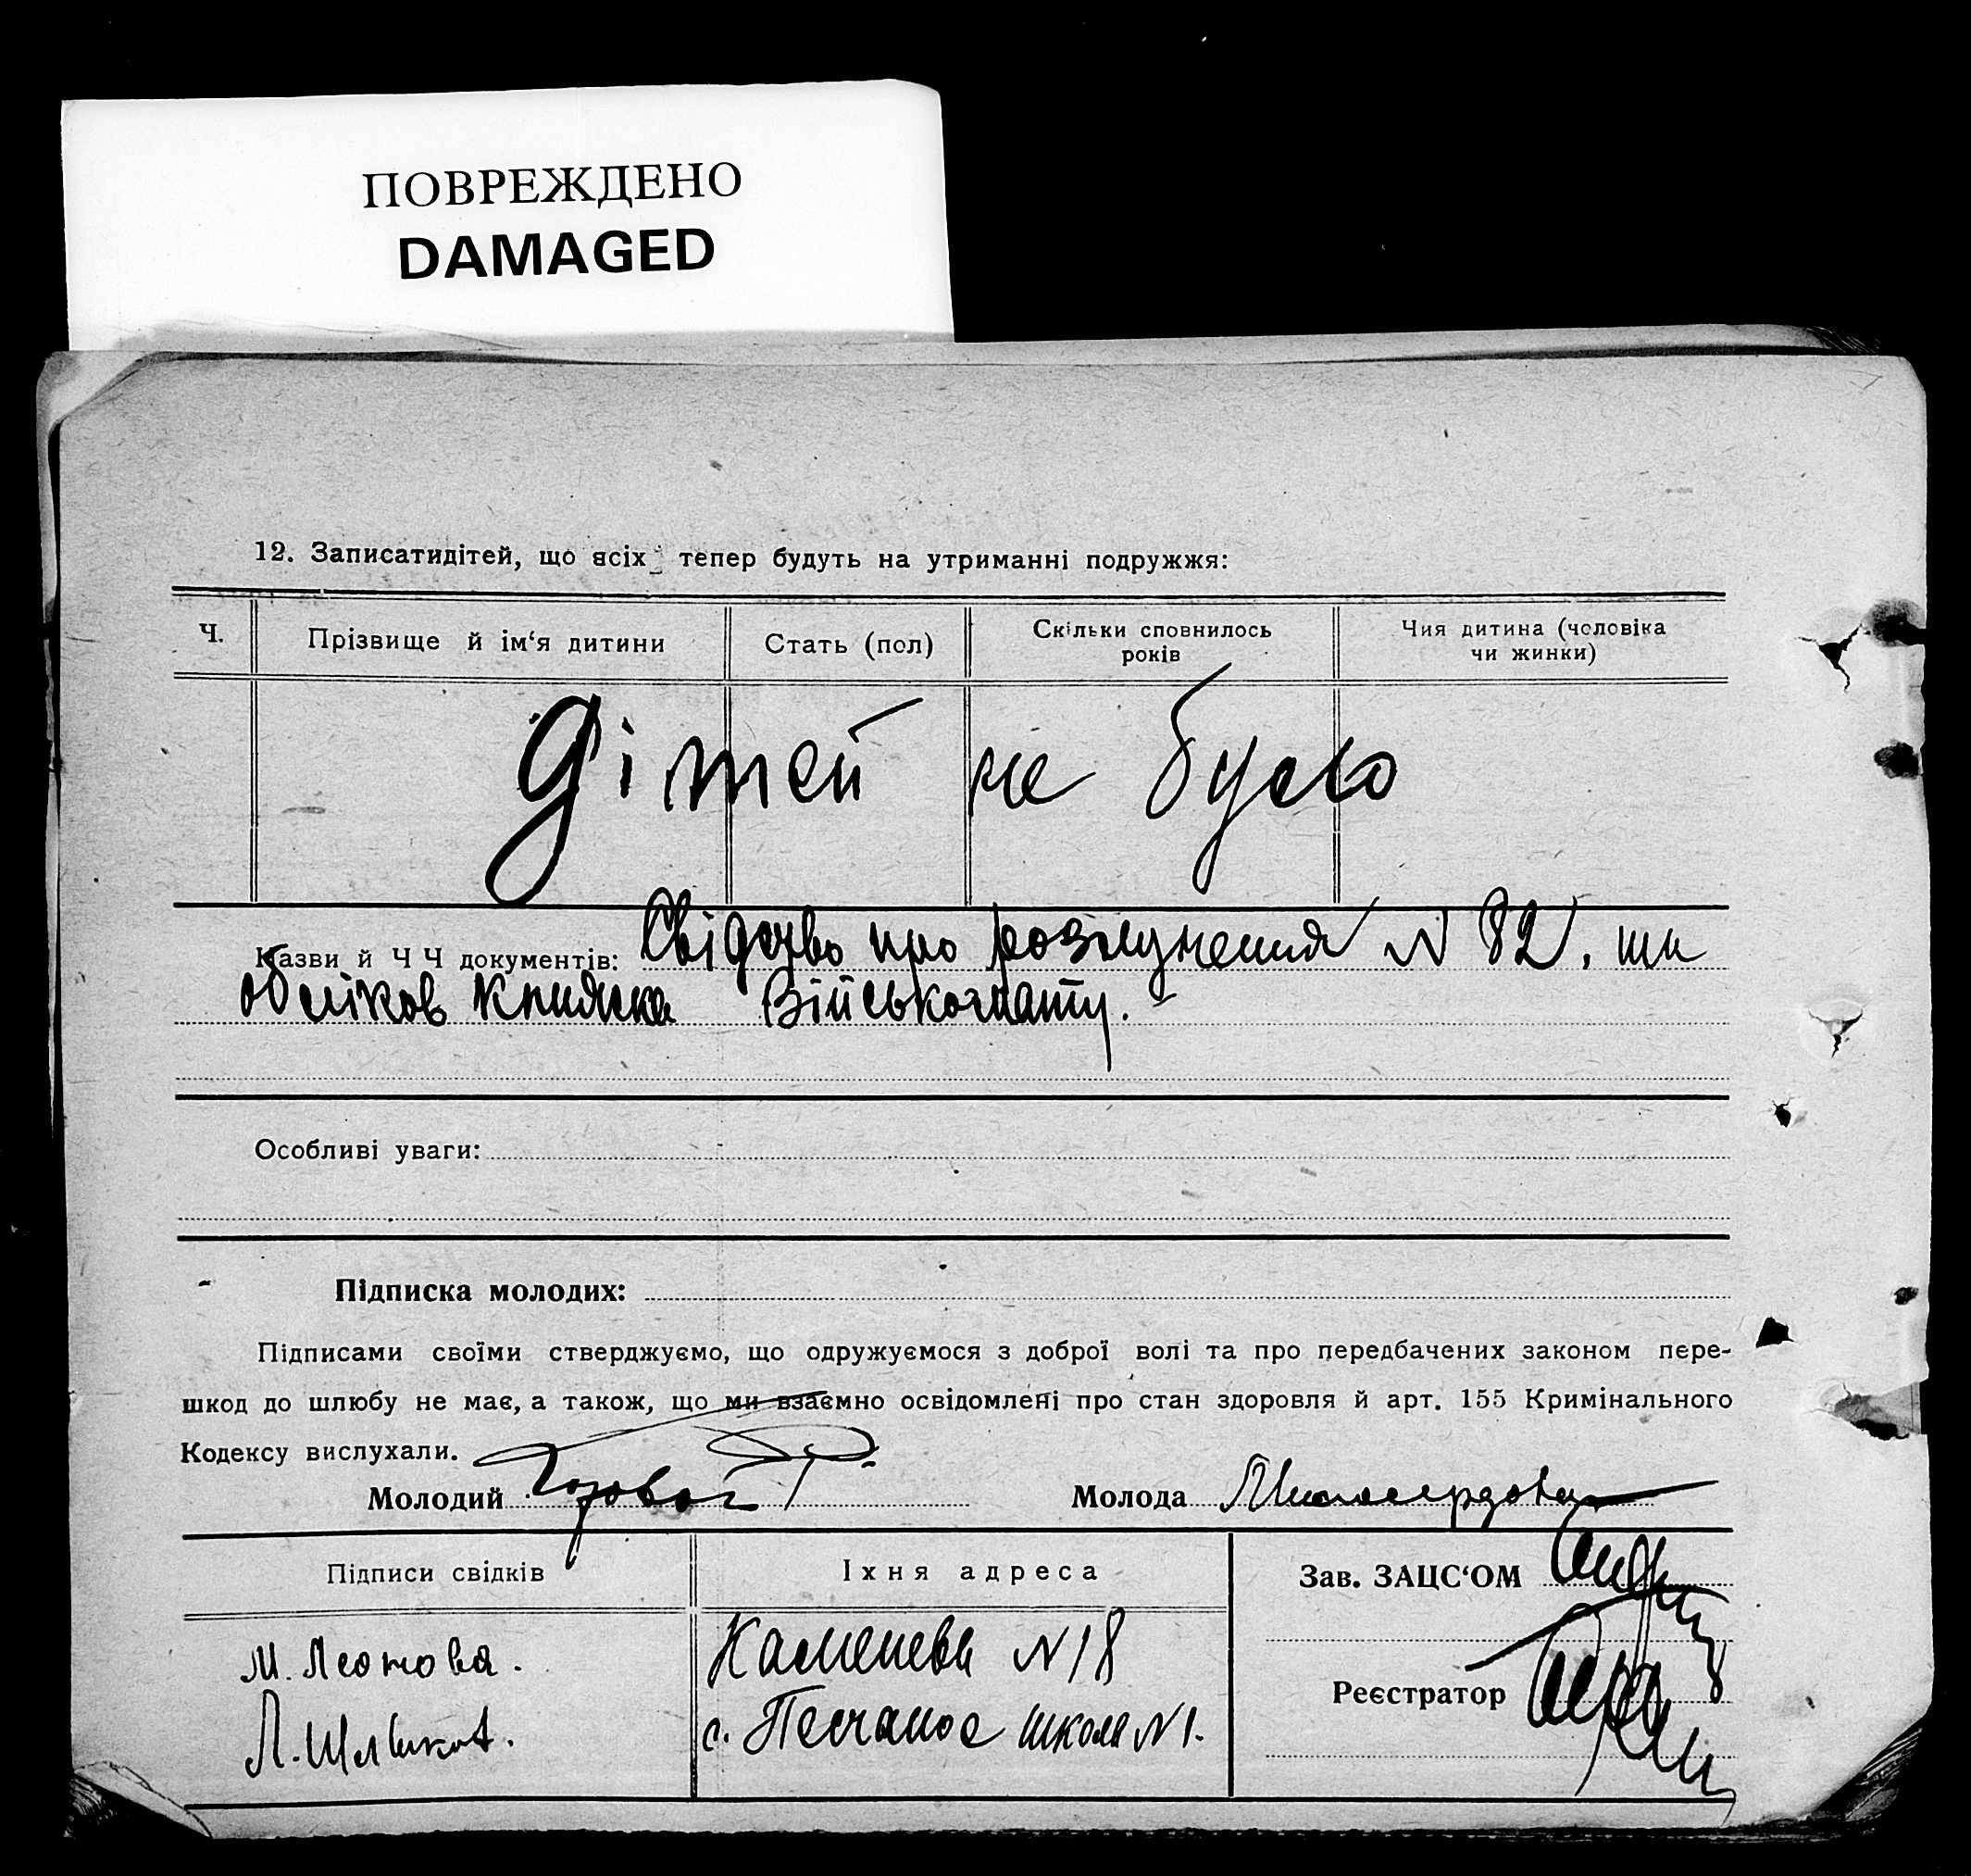 ПОВРЕЖДЕНО
DAMAGED
12. Записатидітей, що всіх тепер будуть на утриманні подружжя:
Ч.
Прізвище й ім‘я дитини
Стать (пол)
Скільки сповнилось
років
Чия дитина (чоловіка
чи жинки)
Дітей не було
Назви й Ч Ч документів: Свідоцтво про розлучення N 82.
обліков книжка Військомату.
Особливі уваги:
Підписка молодих:
Підписами своїми стверджуємо, що одружуємося з доброї волі та про передбачених законом пере-
шкод до шлюбу не має, а також, що ми взаємно освідомлені про стан здоровля й арт. 155 Кримінального
Кодексу вислухали.
Молодий
Молода Милосердова
Підписи свідків
Їхня адреса
Зав. ЗАЦС‘ОМ
М. Леонова.
Каменева N 18
Реєстратор
Л.
с. Песчаное школа N 1.